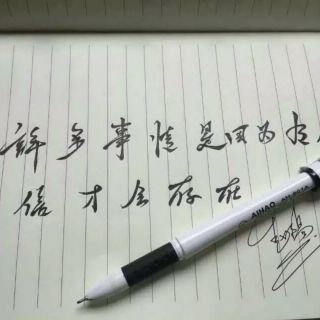 許多事情是因为相
信才会存在
AIHAO